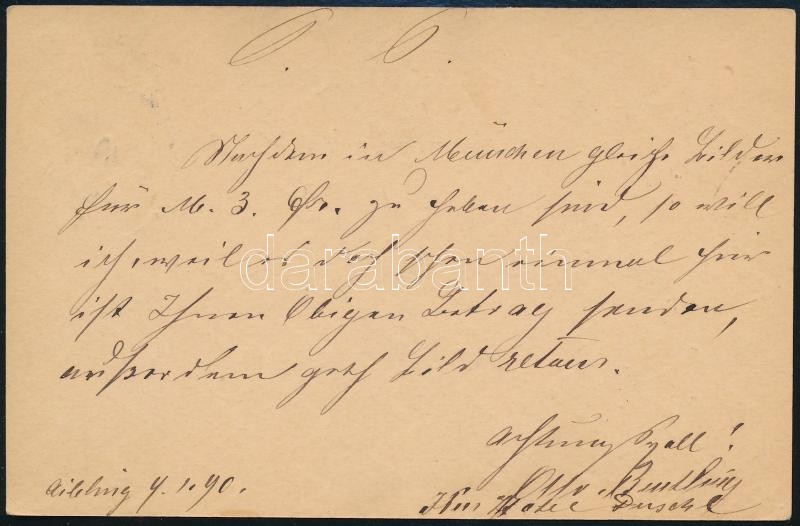 P. P.
Nachdem in München gleiche Bilder
für M. 3. zu haben sind, so will
ich, weil es doch schon einmal hier
ist Ihnen Obigen Betrag senden,
außerdem geht Bild retour.
Achtungsvoll!
Otto
Aibling 4.1.90.
darabanth